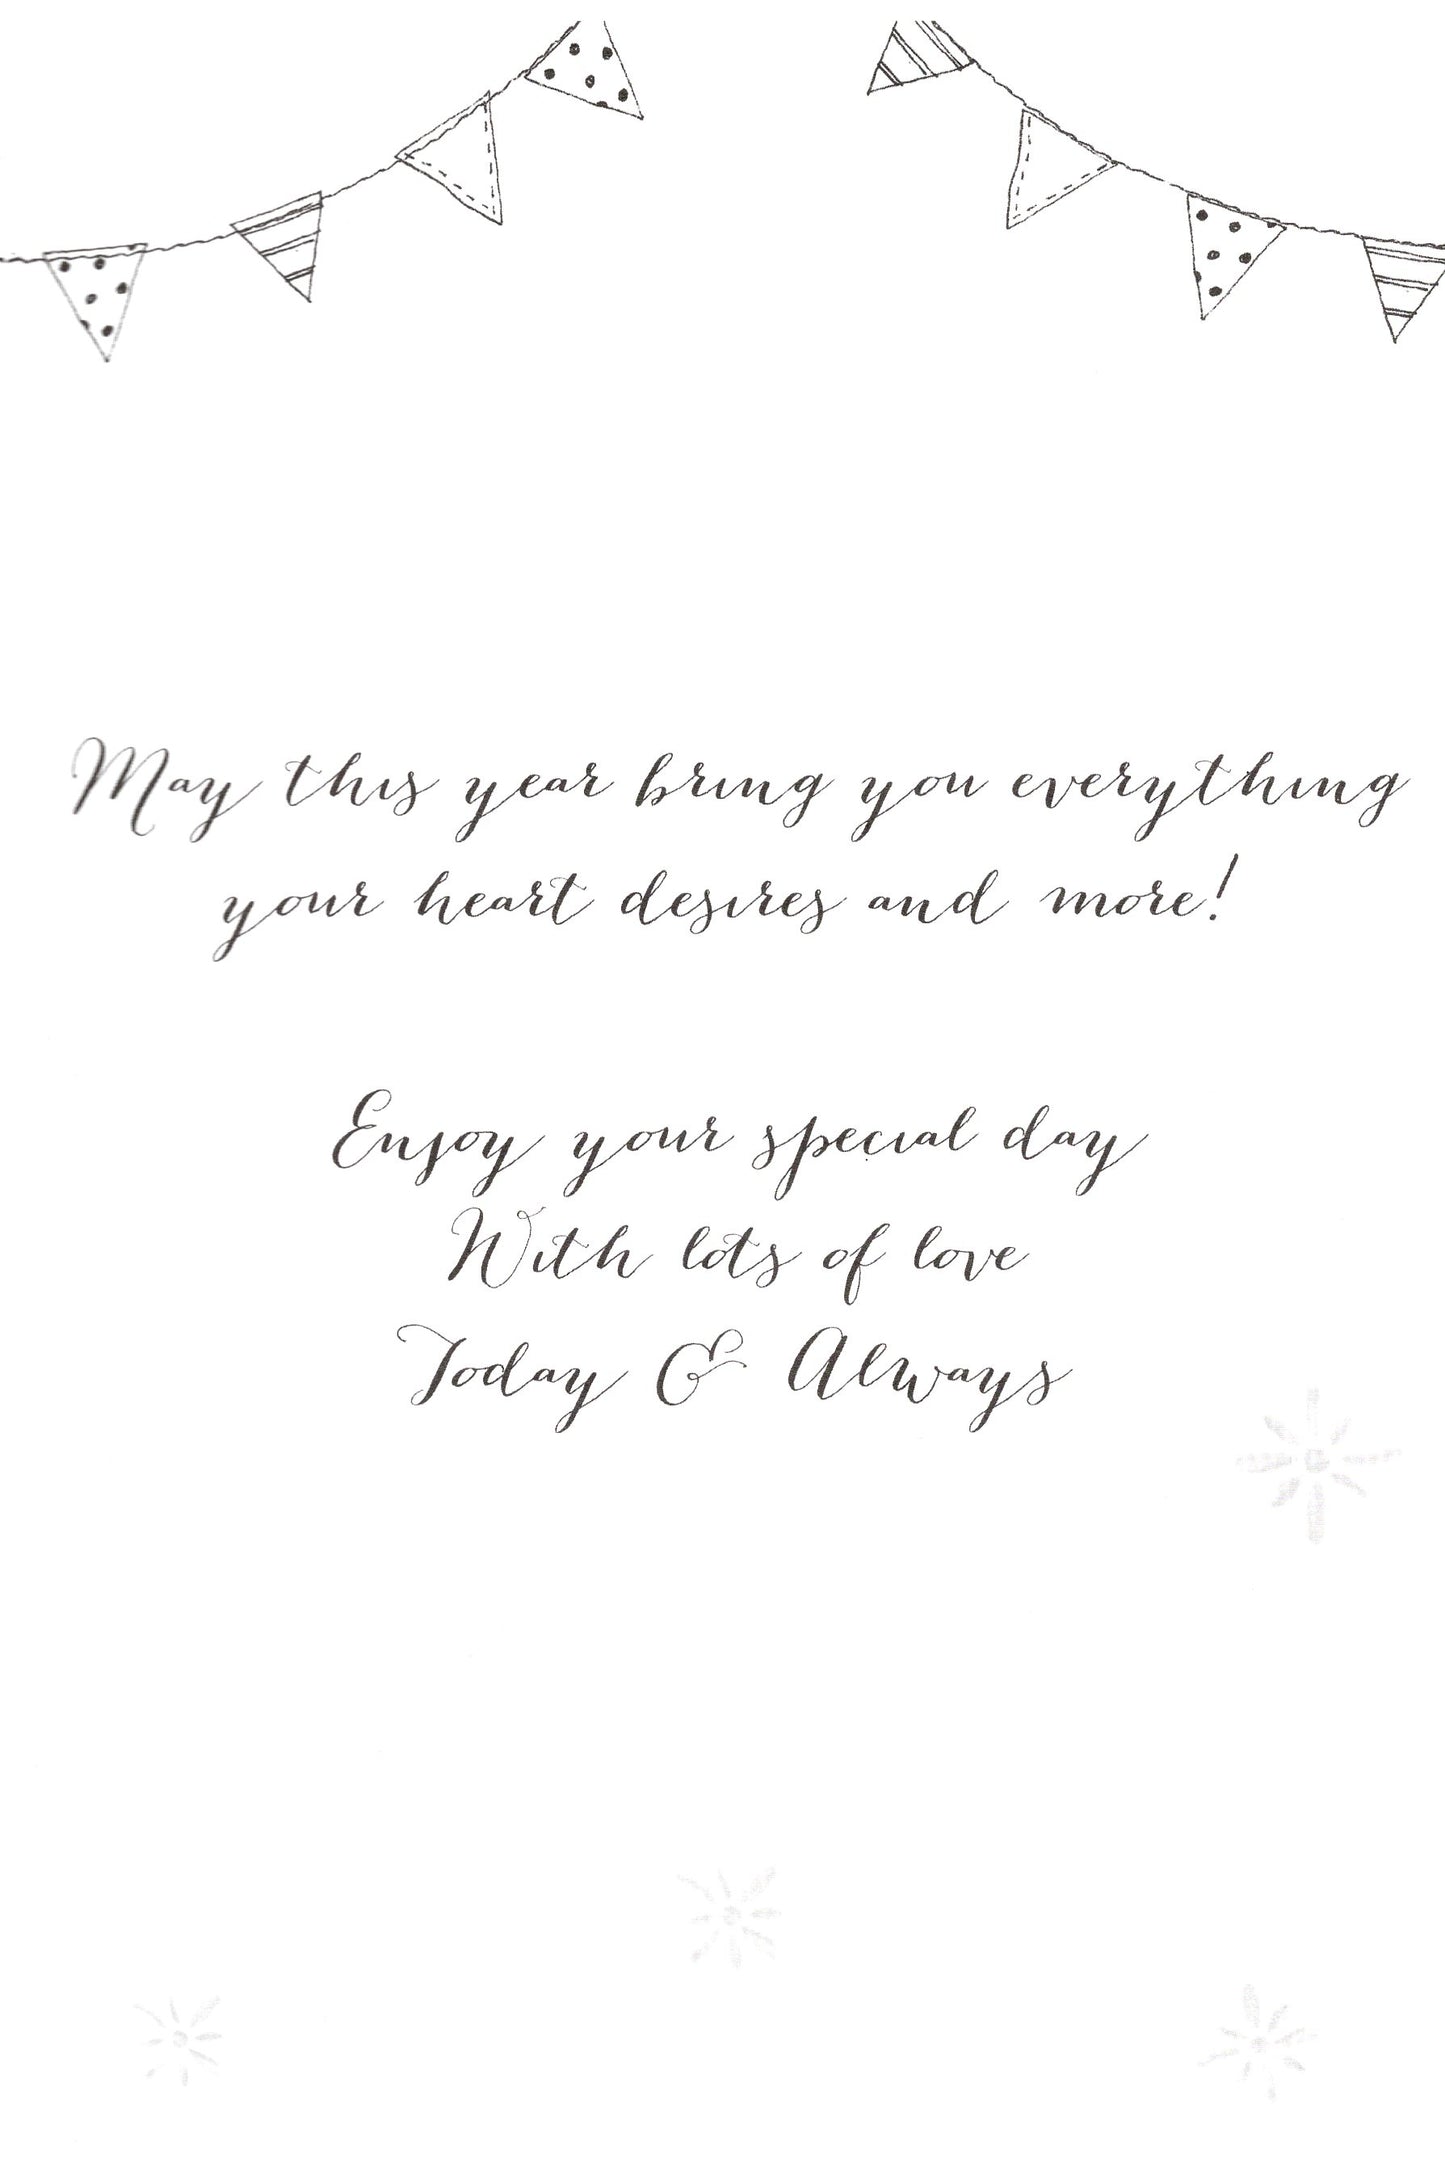 May this year bring you everything
your heart desires and more!
Enjoy your special day
With lots of love
Today & Always